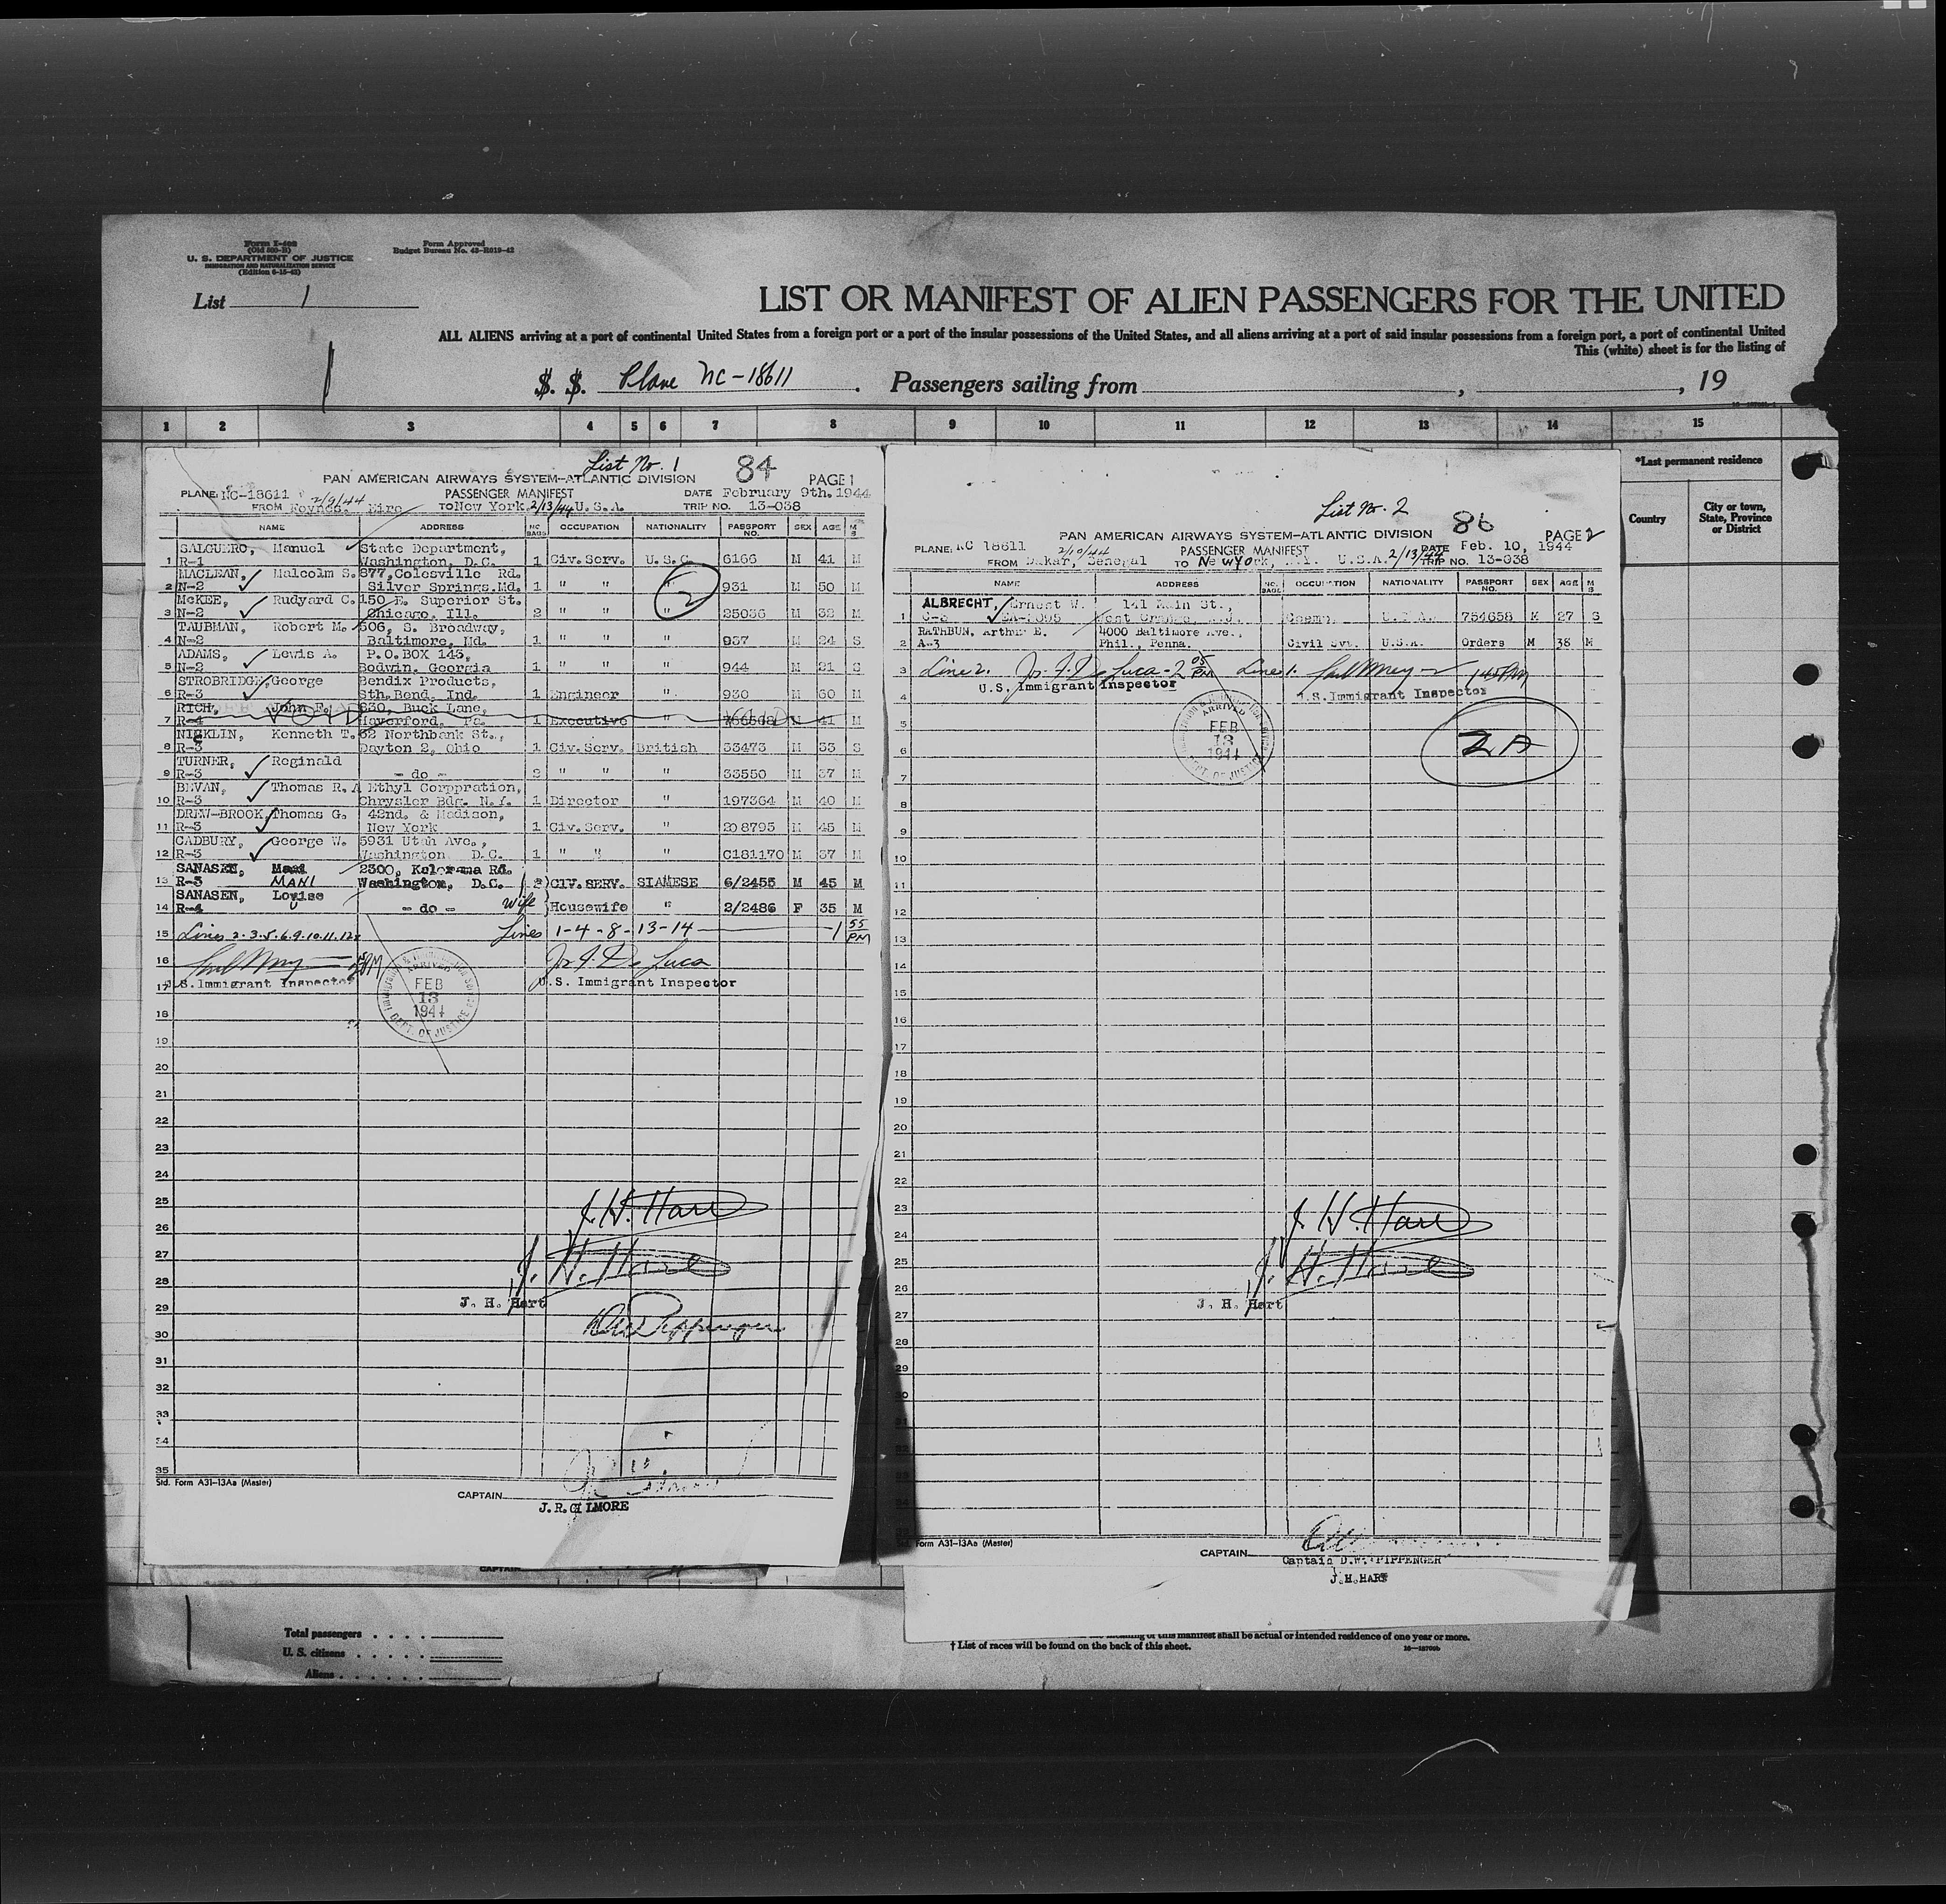 Form I-408
(Old 500-B)
U. S. DEPARTMENT OF JUSTICE
IMMIGRATION AND NATURALIZATION SERVICE
(Edition 6-15-42)
Form Approved
Budget Bureau No. 43-R019-42
List 1
LIST OR MANIFEST OF ALIEN PASSENGERS FOR THE UNITED
ALL ALIENS arriving at a port of continental United States from a foreign port or a port of the insular possessions of the United States, and all aliens arriving at a port of said insular possessions from a foreign port, a port of continental United
This (white) sheet is for the listing of
S. S. Plane NC-18611. Passengers sailing from , , 19
1 2 3 4 5 6 7 8 9 10 11 12 13 14 15
*Last permanent residence
Country
City or town, State, Province or District
List No. 1 84
PAN AMERICAN AIRWAYS SYSTEM-ATLANTIC DIVISION PAGE 1
PLANE: NC-18611 PASSENGER MANIFEST DATE February 9th. 1944
2/9/44
FROM Foynes. Eire TO New York 2/13/44 U.S.A. TRIP NO. 13-038
NAME ADDRESS NO. BAGS OCCUPATION NATIONALITY PASSPORT NO. SEX AGE M S
SALGUERO, Manuel State Department,
1 R-1 Washington, D.C. 1 Civ. Serv. U.S.C. 6166 M 41 M
MACLEAN, Malcolm S. 877, Colesville Rd.
2 N-2 Silver Springs. Md. 1 " " " 931 M 50 M
2
McKEE, Rudyard C. 150 E. Superior St.
3 N-2 Chicago. Ill. 2 " " " 25036 M 32 M
TAUBMAN, Robert M. 506, S. Broadway,
4 N-2 Baltimore, Md. 1 " " " 937 M 24 S
ADAMS, Lewis A. P.O.BOX 143,
5 N-2 Bodwin. Georgia 1 " " " 944 M 21 S
STROBRIDGE, George Bendix Products,
6 R-3 Sth. Bend. Ind. 1 Engineer " 930 M 60 M
RICH, John F. 830, Buck Lane,
7 R-4 Haverford. Pa. 1 Executive " M 41 M
NICKLIN, Kenneth T. 62 Northbank St.,
8 R-3 Dayton 2, Ohio 1 Civ. Serv. British 33473 M 33 S
TURNER, Reginald
9 R-3 - do - 2 " " " 33550 M 37 M
BEVAN, Thomas R. A Ethyl Corppration,
10 R-3 Chrysler Bdg. N.Y. 1 Director " 197364 M 40 M
DREW-BROOK, Thomas G. 42nd. & Madison,
11 R-3 New York 1 Civ. Serv. " 208795 M 45 M
CADBURY, George W. 5931 Utah Ave.,
12 R-3 Washington D.C. 1 " " " C181170 M 37 M
SANASEN, Mani 2300, Kalorama Rd.
13 R-3 MANI Washington, D.C. 2 CIV. SERV. SIAMESE 6/2455 M 45 M
SANASEN, Louise
14 R-4 - do - Wife Housewife " 2/2486 F 35 M
15 Lines 2-3-5-6-9-10-11-12 Lines 1-4-8-13-14 1 55 PM
16 Jr. F. De Luca
17 U.S. Immigrant Inspector U.S. Immigrant Inspector
ARRIVED
FEB
13
1944
DEPT. OF JUSTICE
18
19
20
21
22
23
24
25 J. H. Hart
26
27 J. H. Hart
28
J. H. Hart
29
30
31
32
33
34
35
Std. Form A31-13Aa (Master)
CAPTAIN
J.R. GILMORE
CAPTAIN
List No. 2 86
PAN AMERICAN AIRWAYS SYSTEM-ATLANTIC DIVISION PAGE 2
PLANE: NC 18611 2/10/44 PASSENGER MANIFEST 2/13/44 DATE Feb. 10, 1944
FROM Dakar, Senegal TO New York, N.Y. U.S.A. TRIP NO. 13-038
NAME ADDRESS NO. BAGS OCCUPATION NATIONALITY PASSPORT NO. SEX AGE M S
ALBRECHT, Ernest W. 141 Main St.,
1 West Orange, N.J. U.S.A. 754658 M 27 S
RATHBUN, Arthur E. 4000 Baltimore Ave.,
2 A-3 Phil., Penna. Civil Svc. U.S.A. Orders M 38 M
3 Line 2. Jr. F. De Luca - 2 05 PM Line 1. 1 45 PM
U.S. Immigrant Inspector U.S. Immigrant Inspector
4
ARRIVED
FEB
13
1944
DEPT. OF JUSTICE
2A
5
6
7
8
9
10
11
12
13
14
15
16
17
18
19
20
21
22
23 J. H. Hart
24
25 J. H. Hart
26
J. H. Hart
27
28
29
30
31
32
33
34
35
Std. Form A31-13Aa (Master)
CAPTAIN
Captain D.W. PIPPENGER
J.H.HART
Total passengers
U. S. citizens
Aliens
of this manifest shall be actual or intended residence of one year or more.
† List of races will be found on the back of this sheet.